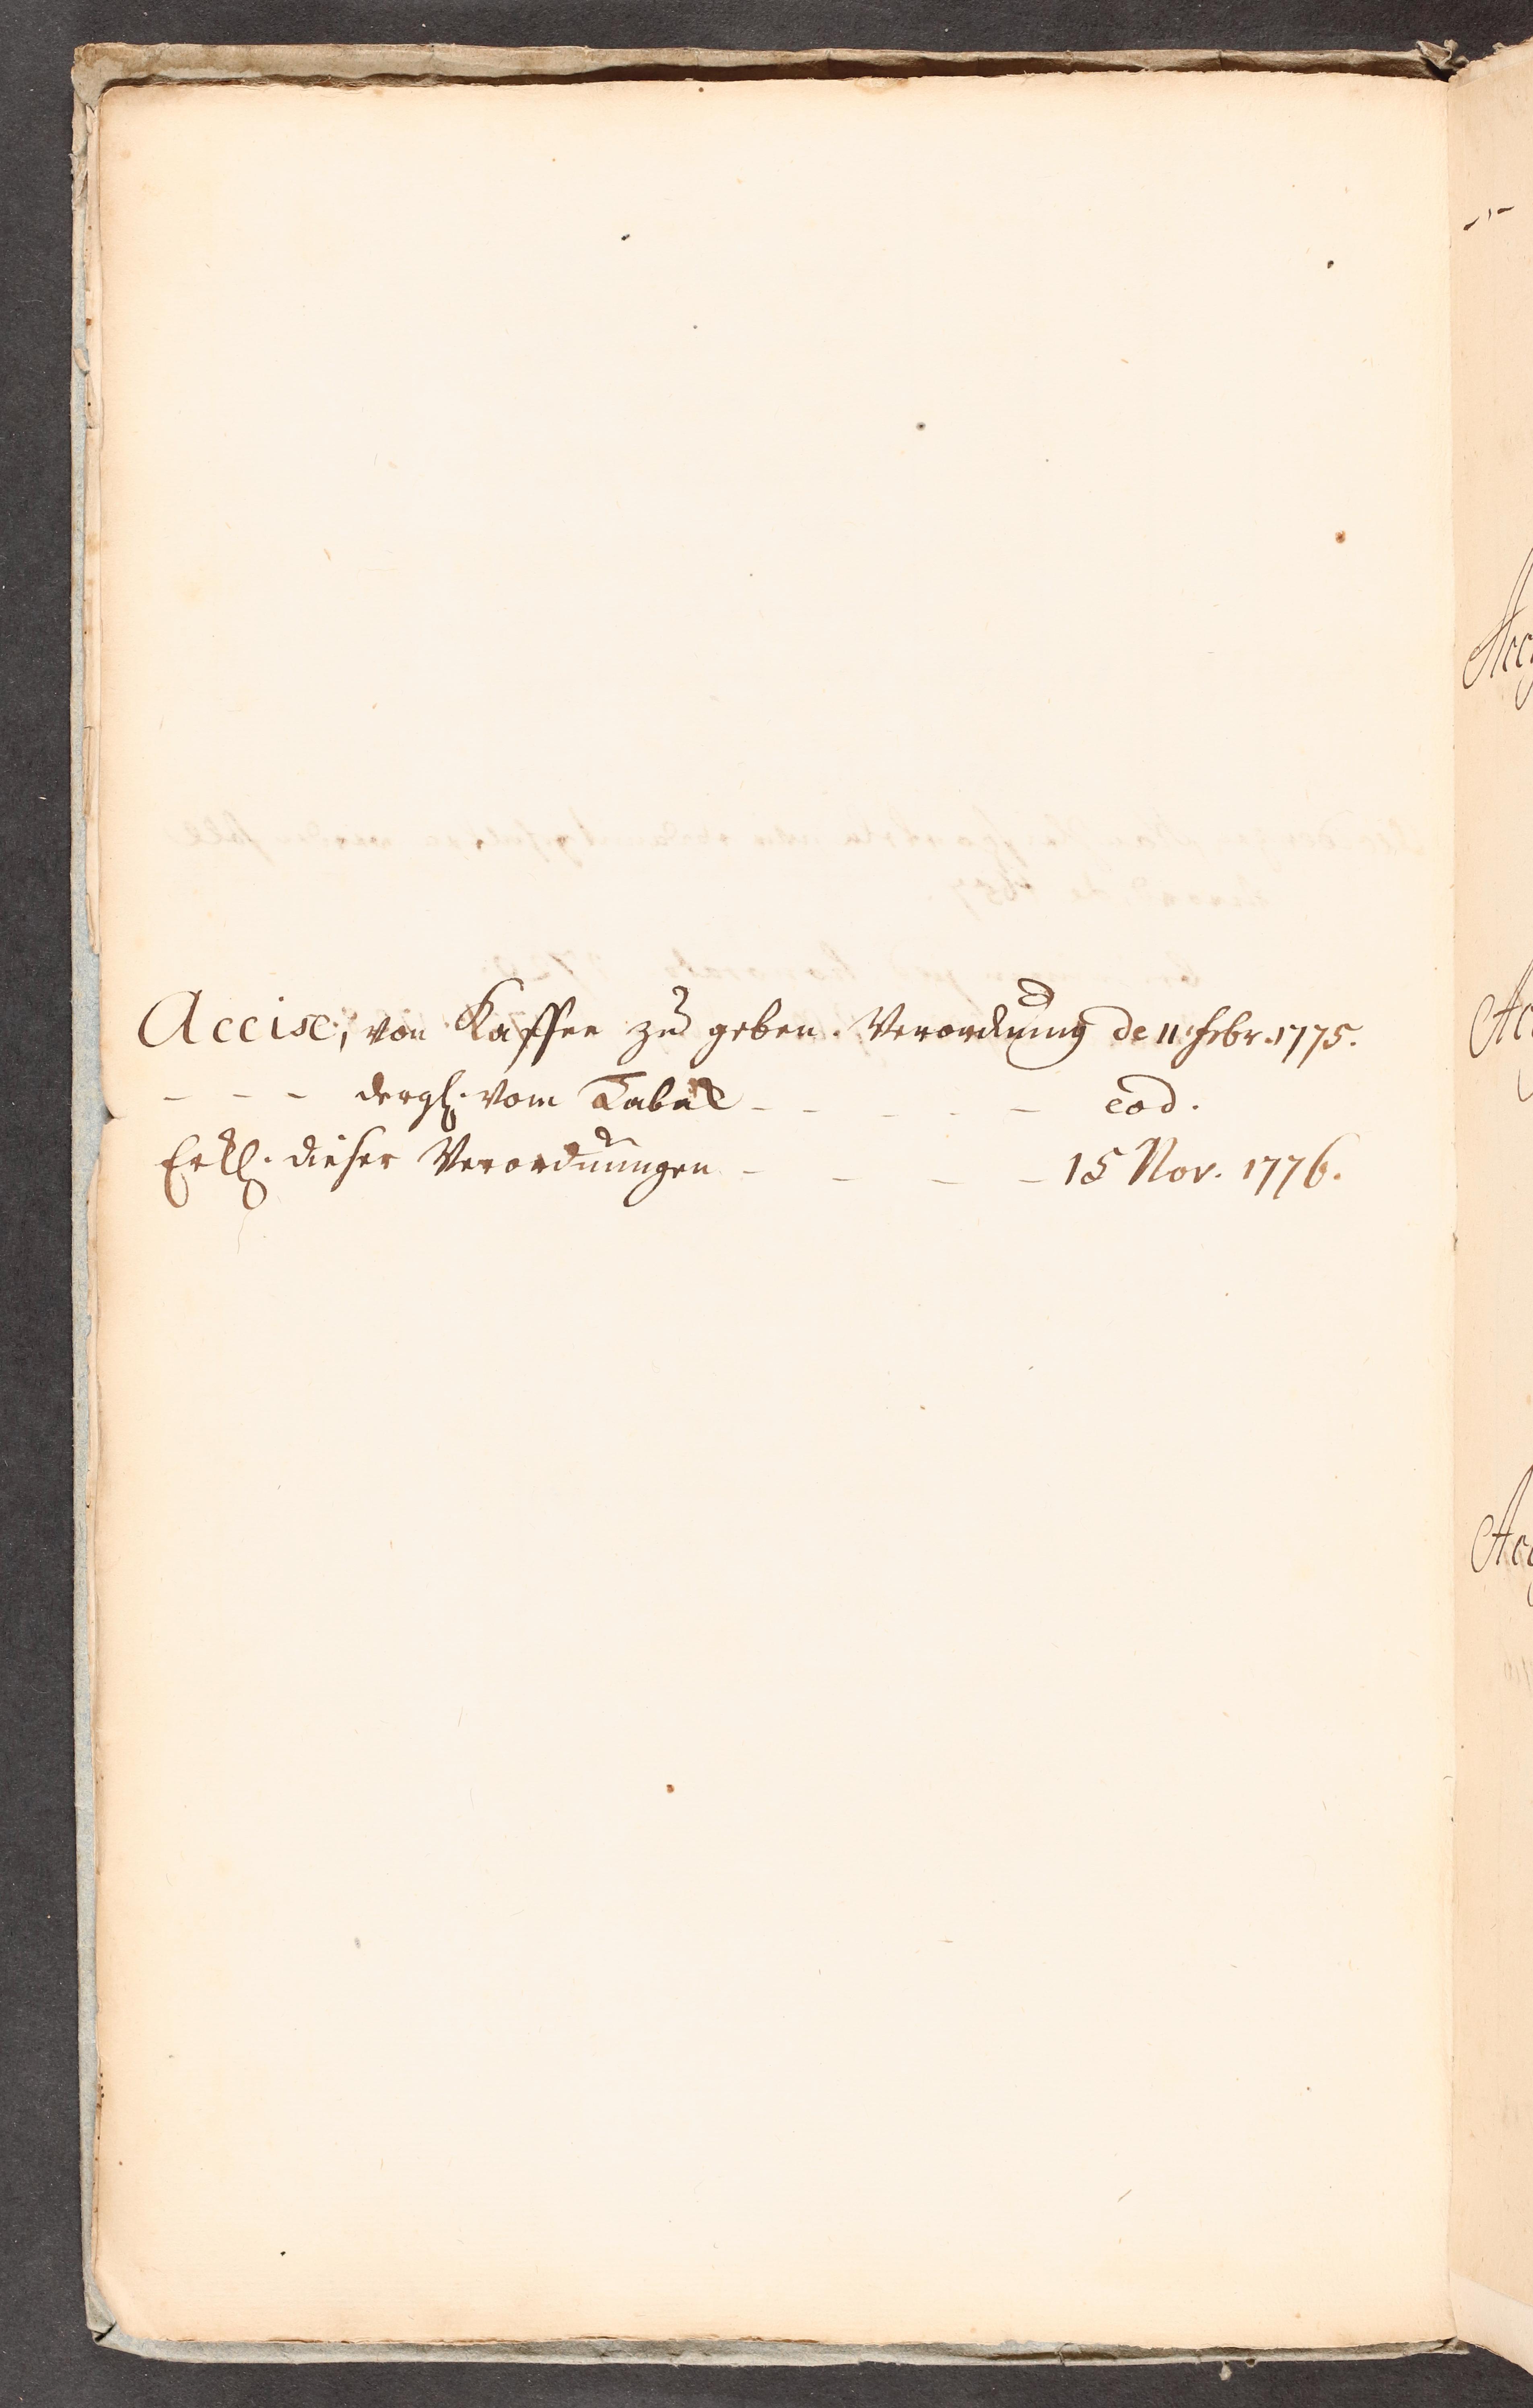 Accise, von Kaffee zu geben. Verordnung de 11. Febr. 1775.
- - - dergl. vom Taback - - - - - eod.
Erkl. dieser Verordnungen - - - - 15 Nov. 1776.